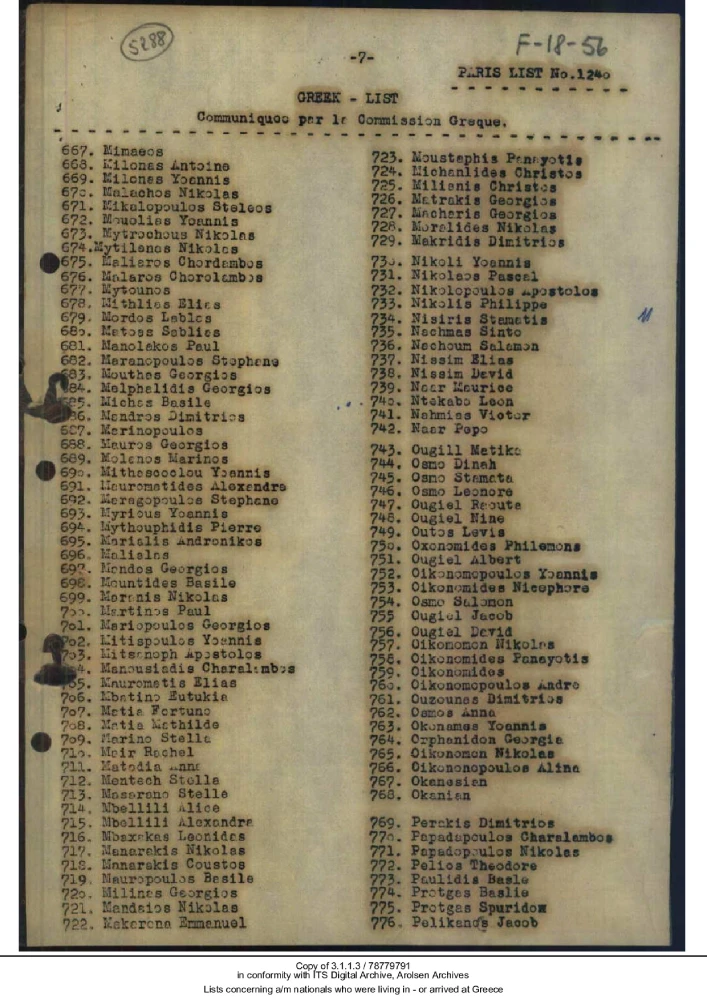 5288
F-18-56
-7-
PARIS LIST No.1240
GREEK - LIST
Communiquee par la Commission Greque.
667. Mimaeos
668. Milonas Antoine
669. Milonas Yoannis
670. Malachos Nikolas
671. Mikalopoulos Steleos
672. Mouolias Yoannis
673. Mytrochous Nikolas
674.Mytilenas Nikolas
675. Maliaros Chordambos
676. Malaros Chorolambos
677. Mytounos
678. Mithlias Elias
679. Mordos Lablas
680. Matoas Sablias
681. Manolakos Paul
682. Maranopoulos Stephane
683. Mouthas Georgios
684. Melphalidis Georgios
685. Michas Basile
686. Mandros Dimitrios
687. Marinopoulos
688. Mauros Georgios
689. Molanos Marinos
690. Mithascoolou Yoannis
691. Mauromatides Alexandre
692. Maragopoulos Stephane
693. Myrious Yoannis
694. Mythouphidis Pierre
695. Marialis Andronikos
696. Malialas
697. Mandos Georgios
698. Mountides Basile
699. Maronis Nikolas
700. Martinos Paul
701. Mariopoulos Georgios
702. Mitispoulos Yoannis
703. Mitsanoph Apostolos
704. Manousiadis Charalambos
705. Mauromatis Elias
706. Mbatino Eutukia
707. Matia Fortuno
708. Matia Mathilde
709. Marino Stella
710. Mair Rachel
711. Matodia Anna
712. Mentach Stella
713. Massarano Stelle
714. Mbellili Alice
715. Mbellili Alexandra
716. Mbaxakas Leonidas
717. Manarakis Nikolas
718. Manarakis Coustos
719. Mauropoulos Basile
720. Milinas Georgios
721. Mandaios Nikolas
722. Makarona Emmanuel
723. Moustaphis Panayotis
724. Michanlides Christos
725. Milianis Christos
726. Matrakis Georgios
727. Macharis Georgios
728. Moralides Nikolas
729. Makridis Dimitrios
730. Nikoli Yoannis
731. Nikolaos Pascal
732. Nikolopoulos Apostolos
733. Nikolis Philippe
734. Nisiris Stamatis
735. Nachmas Sinto
736. Nachoum Salamon
737. Nissim Elias
738. Nissim David
739. Naar Maurice
740. Ntokabo Leon
741. Nahmias Victor
742. Naar Pepo
743. Ougill Matika
744. Osmo Dinah
745. Osno Stamata
746. Osmo Leonore
747. Ougiel Raouta
748. Ougiel Nine
749. Outos Levis
750. Oxonomides Philemons
751. Ougiel Albert
752. Oikonomopoulos Yoannis
753. Oikonomides Nicephore
754. Osmo Salomon
755 Ougiel Jacob
756. Ougiel David
757. Oikonomon Nikolas
758. Oikonomides Panayotis
759. Oikonomidos
760. Oikonomopoulos Andre
761. Ouzounas Dimitrios
762. Osmos Anna
763. Okonamos Yoannis
764. Orphanidon Georgia
765. Oikonomon Nikolas
766. Oikononopoulos Alina
767. Okanesian
768. Okanian
769. Perakis Dimitrios
770. Papadapoulos Charalambos
771. Papadopoulos Nikolas
772. Pelios Theodore
773. Paulidis Basle
774. Protgas Baslie
775. Protgas Spuridon
776. Pelikanos Jacob
Copy of 3.1.1.3 / 78779791
in conformity with ITS Digital Archive, Arolsen Archives
Lists concerning a/m nationals who were living in - or arrived at Greece